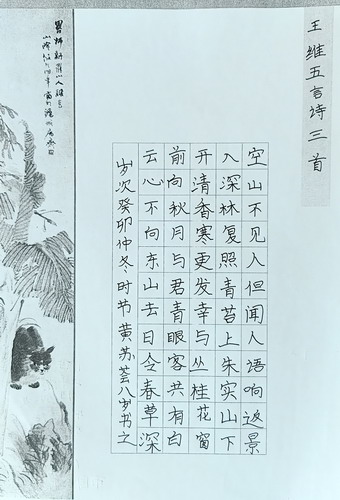 王维五言诗三首
空山不见人但闻人语响返景
入深林复照青苔上朱实山下
开清香寒更发幸与丛桂花窗
前向秋月与君青眼客共有白
云心不向东山去日令春草深
岁次癸卯仲冬时节黄苏荟八岁书之